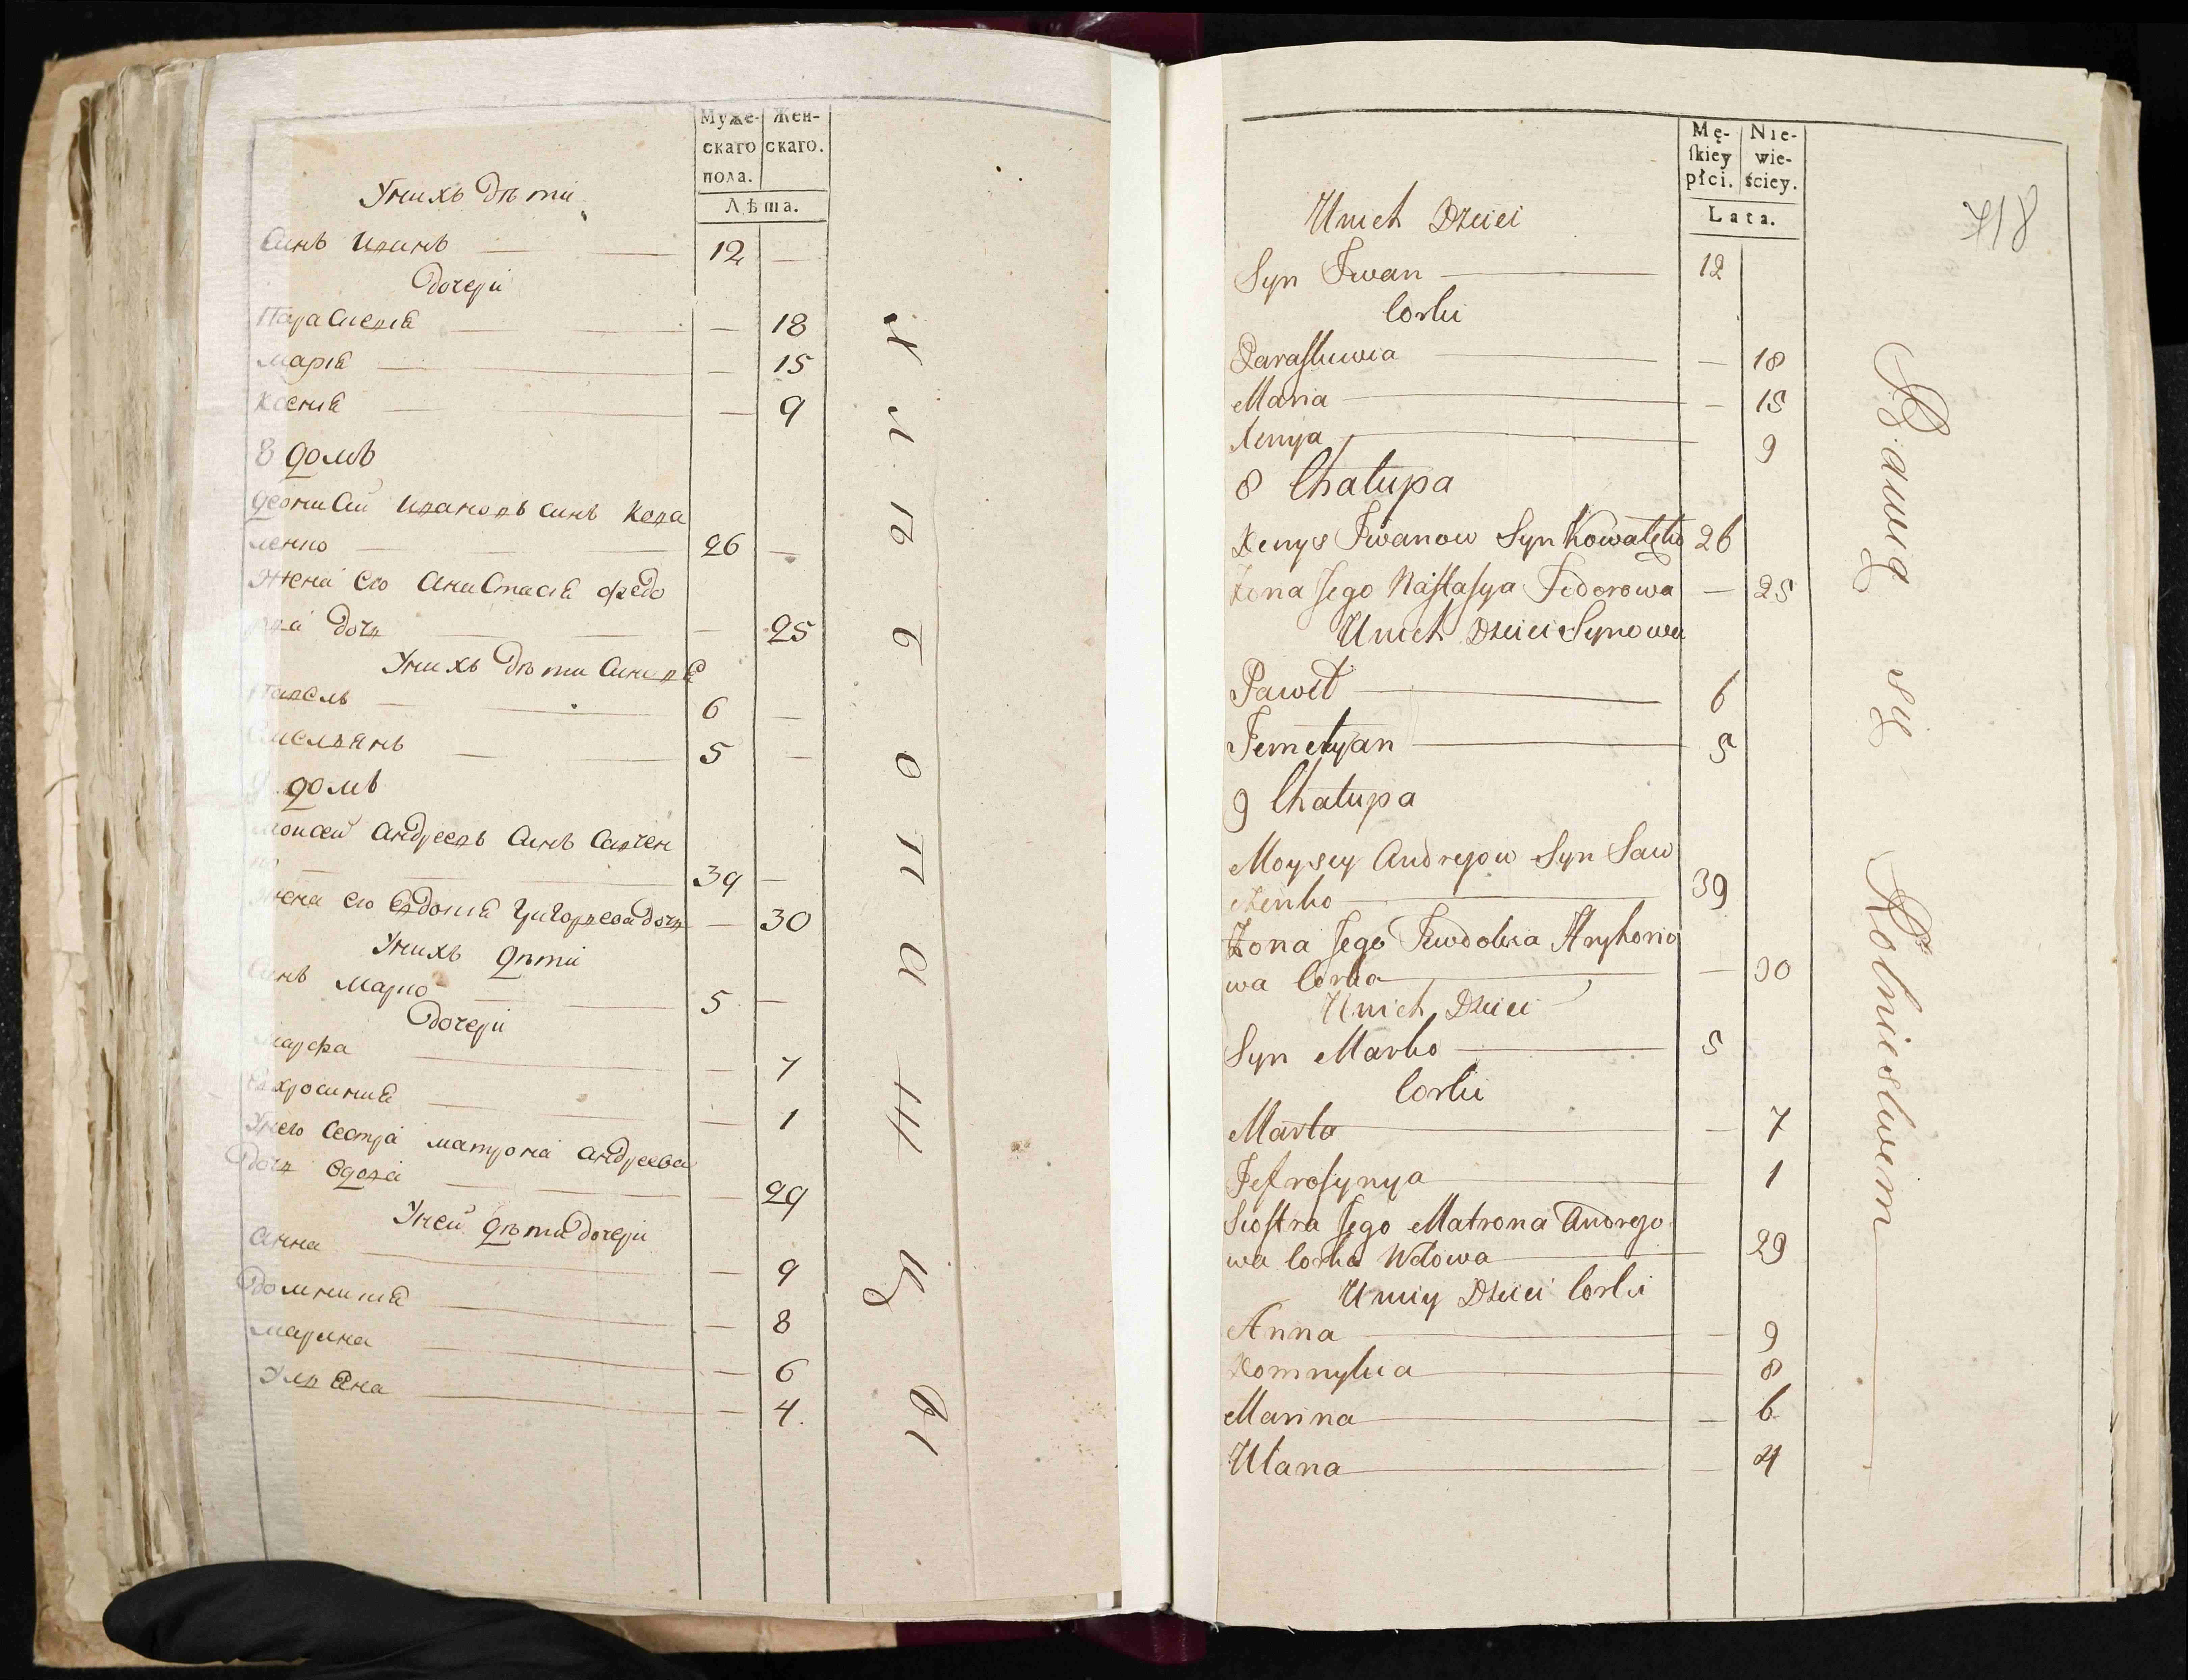 Муже-
скаго
пола.
Жен-
скаго.
Лѣта.
Унихъ дѣти
Синъ Иванъ 12 —
дочери
Параскевіа — 18
Маріа — 15
Ксеніа — 9
8 домъ
Деонисій Ивановъ Синъ Кова
ленко 26 —
Жена его Анастасіа Федо
рва дочь — 25
Унихъ дѣти Синовя
Павелъ 6 —
Емелянъ 5 —
9 домъ
Моисей Андреевъ Синъ Савчен
ко 39 —
Жена его Евдокіа Григорьева дочь — 30
Унихъ дѣти
Синъ Марко 5 —
дочери
Марфа — 7
Евхросиніа — 1
Унего Сестра Матрона Андреева
дочь вдова — 29
Уней дѣти дочери
Анна — 9
Домникіа — 8
Марина — 6
Ульяна — 4
Mę-
skiey
płci.
Nie-
wie-
ściey.
Lata.
718
Unich Dzieci
Syn Iwan 12
Corki
Paraskiwia — 18
Maria — 15
Xenya 9
8 Chałupa
Denys Iwanow Syn Kowalęko 26
Zona Jego Nastasya Fedorowa — 25
Unich Dzieci Synowie
Paweł 6
Jemelyan 5
9 Chałupa
Moysey Andrejow Syn Saw
czenko 39
Zona Jego Iewdokia Hryhorio
wa Corka — 30
Unich Dzieci
Syn Marko 5
Corki
Marta — 7
Jefrosynya 1
Siostra Jego Matrona Andrejo
wa Corka Wdowa 29
Uniey Dzieci Corki
Anna — 9
Domnykia — 8
Marina — 6
Ulana — 4
Bawią się Rolnictwem